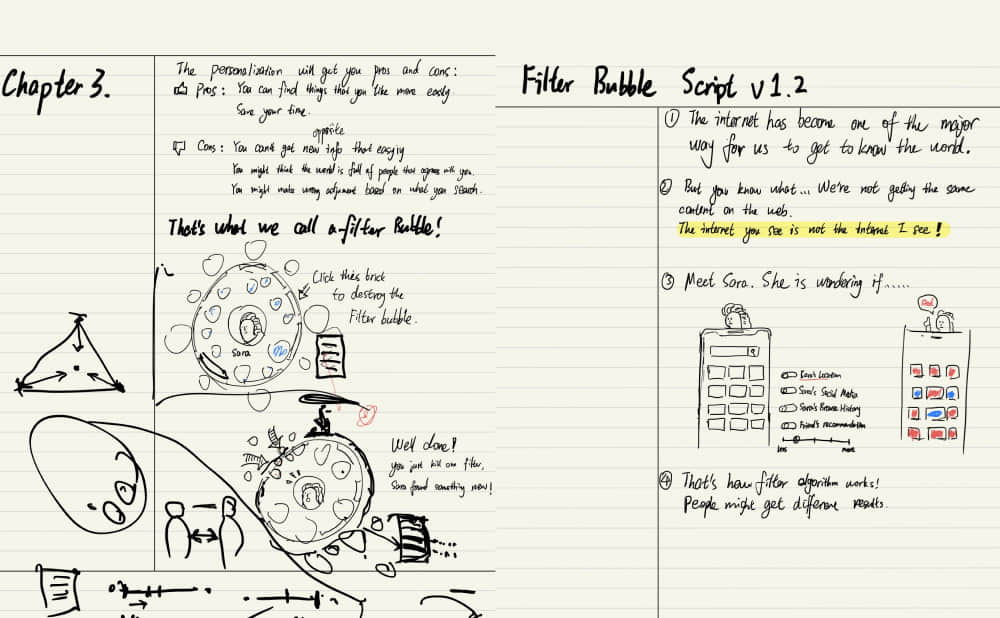 Chapter 3.
The personalization will get you pros and cons:
Pros: You can find things that you like more easily.
Save your time.
opposite
Cons: You can't get new info that easyiy
You might think the world is full of people that agree with you.
You might make wrong adjument based on what you search.
That's what we call a filter Bubble!
Click this brick
to destroy the
Filter bubble.
Sara
Well done!
you just kill one filter,
Sara found something new!
Filter Bubble Script v1.2
① The internet has become one of the major
way for us to get to know the world.
② But you know what... We're not getting the same
content on the web.
The internet you see is not the Internet I see!
③ Meet Sara. She is wondering if.....
Red
Sara's Location
Sara's Social Media
Sara's Browse History
Friend's recommandation
less
more
④ That's how filter algorithm works!
People might get different results.